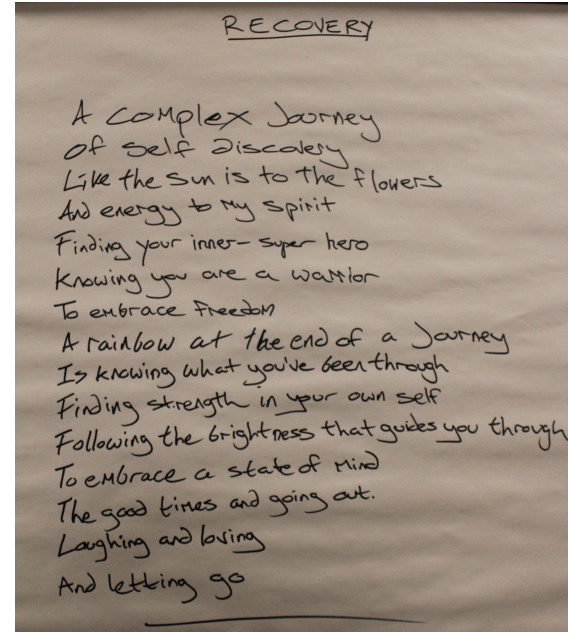 RECOVERY
A complex Journey
of self Discovery
Like the sun is to the flowers
And energy to my spirit
Finding your inner-super hero
Knowing you are a warrior
To embrace freedom
A rainbow at the end of a Journey
Is knowing what you've been through
Finding strength in your own self
Following the brightness that guides you through
To embrace a state of mind
The good times and going out.
Laughing and loving
And letting go